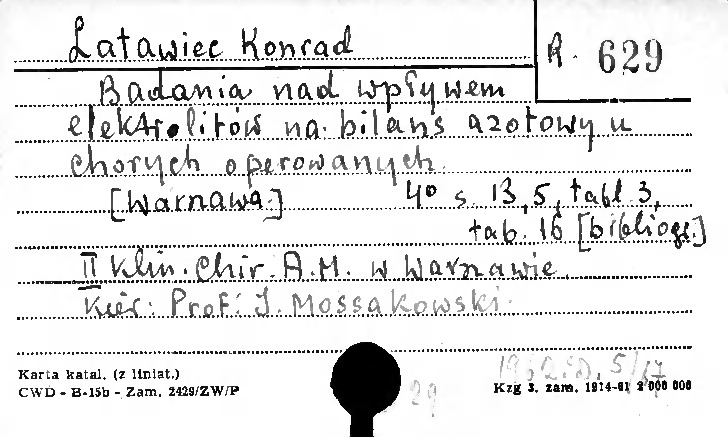 Latawiec Konrad
R. 629
Badania nad wpływem
elektrolitów na bilans azotowy u
chorych operowanych.
[Warszawa.] 4° s. 13, 5, tabl. 3,
tab. 16 [bibliogr.]
II Klin. Chir. A.M. w Warszawie.
Kier: Prof: J. Mossakowski.
Karta katal. (z liniat.)
CWD - B-15b - Zam. 2429/ZW/P
29
Kzg 3. zam. 1914-61 2 000 000